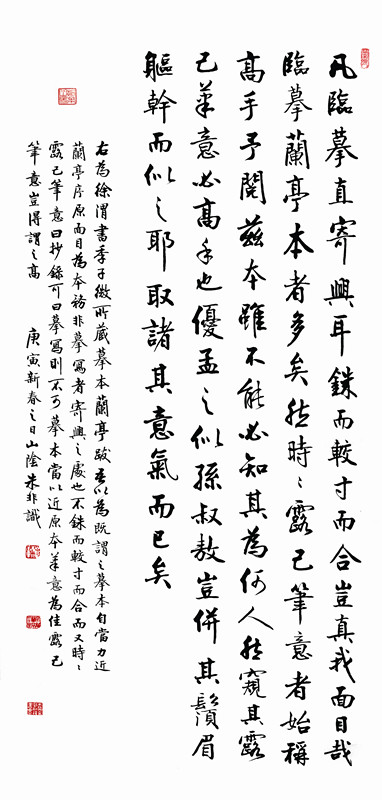 凡臨摹直寄興耳銖而較寸而合豈真我面目哉
臨摹蘭亭本者多矣然時〻露己筆意者始稱
高手予閱茲本雖不能必知其為何人然窺其露
己筆意必高手也優孟之似孫叔敖豈併其鬚眉
軀幹而似之耶取諸其意氣而已矣
右為徐渭書季子微所藏摹本蘭亭跋吾以為既謂之摹本自當力近
蘭亭序原面目為本務非摹寫者寄興之處也不銖而較寸而合而又時〻
露己筆意曰抄錄可曰摹寫則不可摹本當以近原本筆意為佳露己
筆意豈得謂之高 庚寅新春之日山陰朱非識